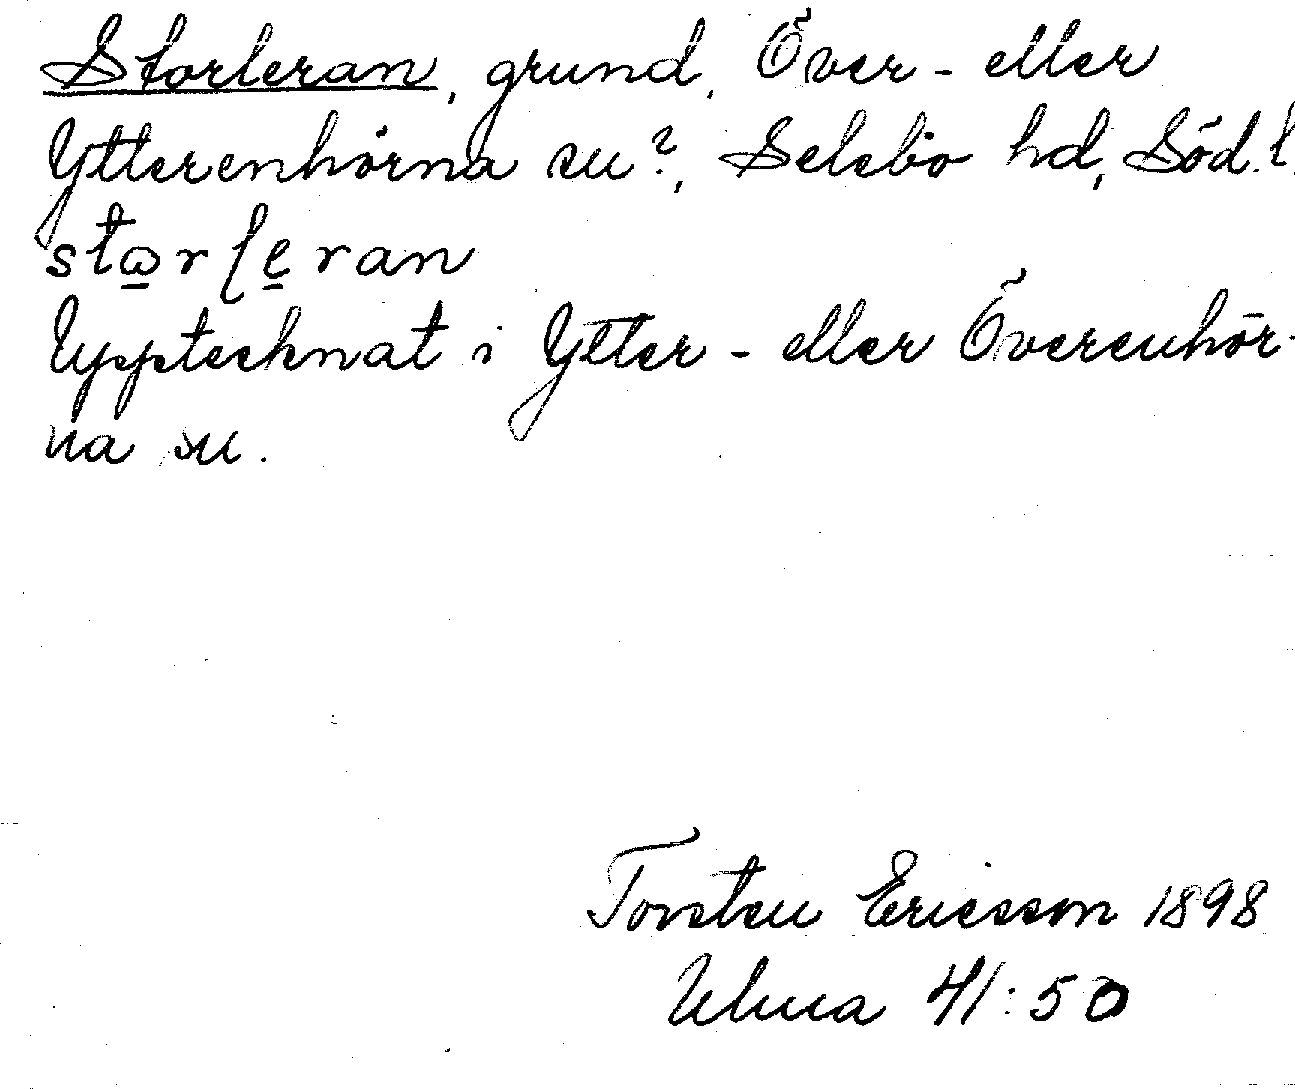 Storleran, grund, Över- eller
Ytterenhörna sn?, Selebo hd, Söd.l.
Upptecknat i Ytter- eller Överenhör-
na sn.
Torsten Ericsson 1898
Ulma 41:50